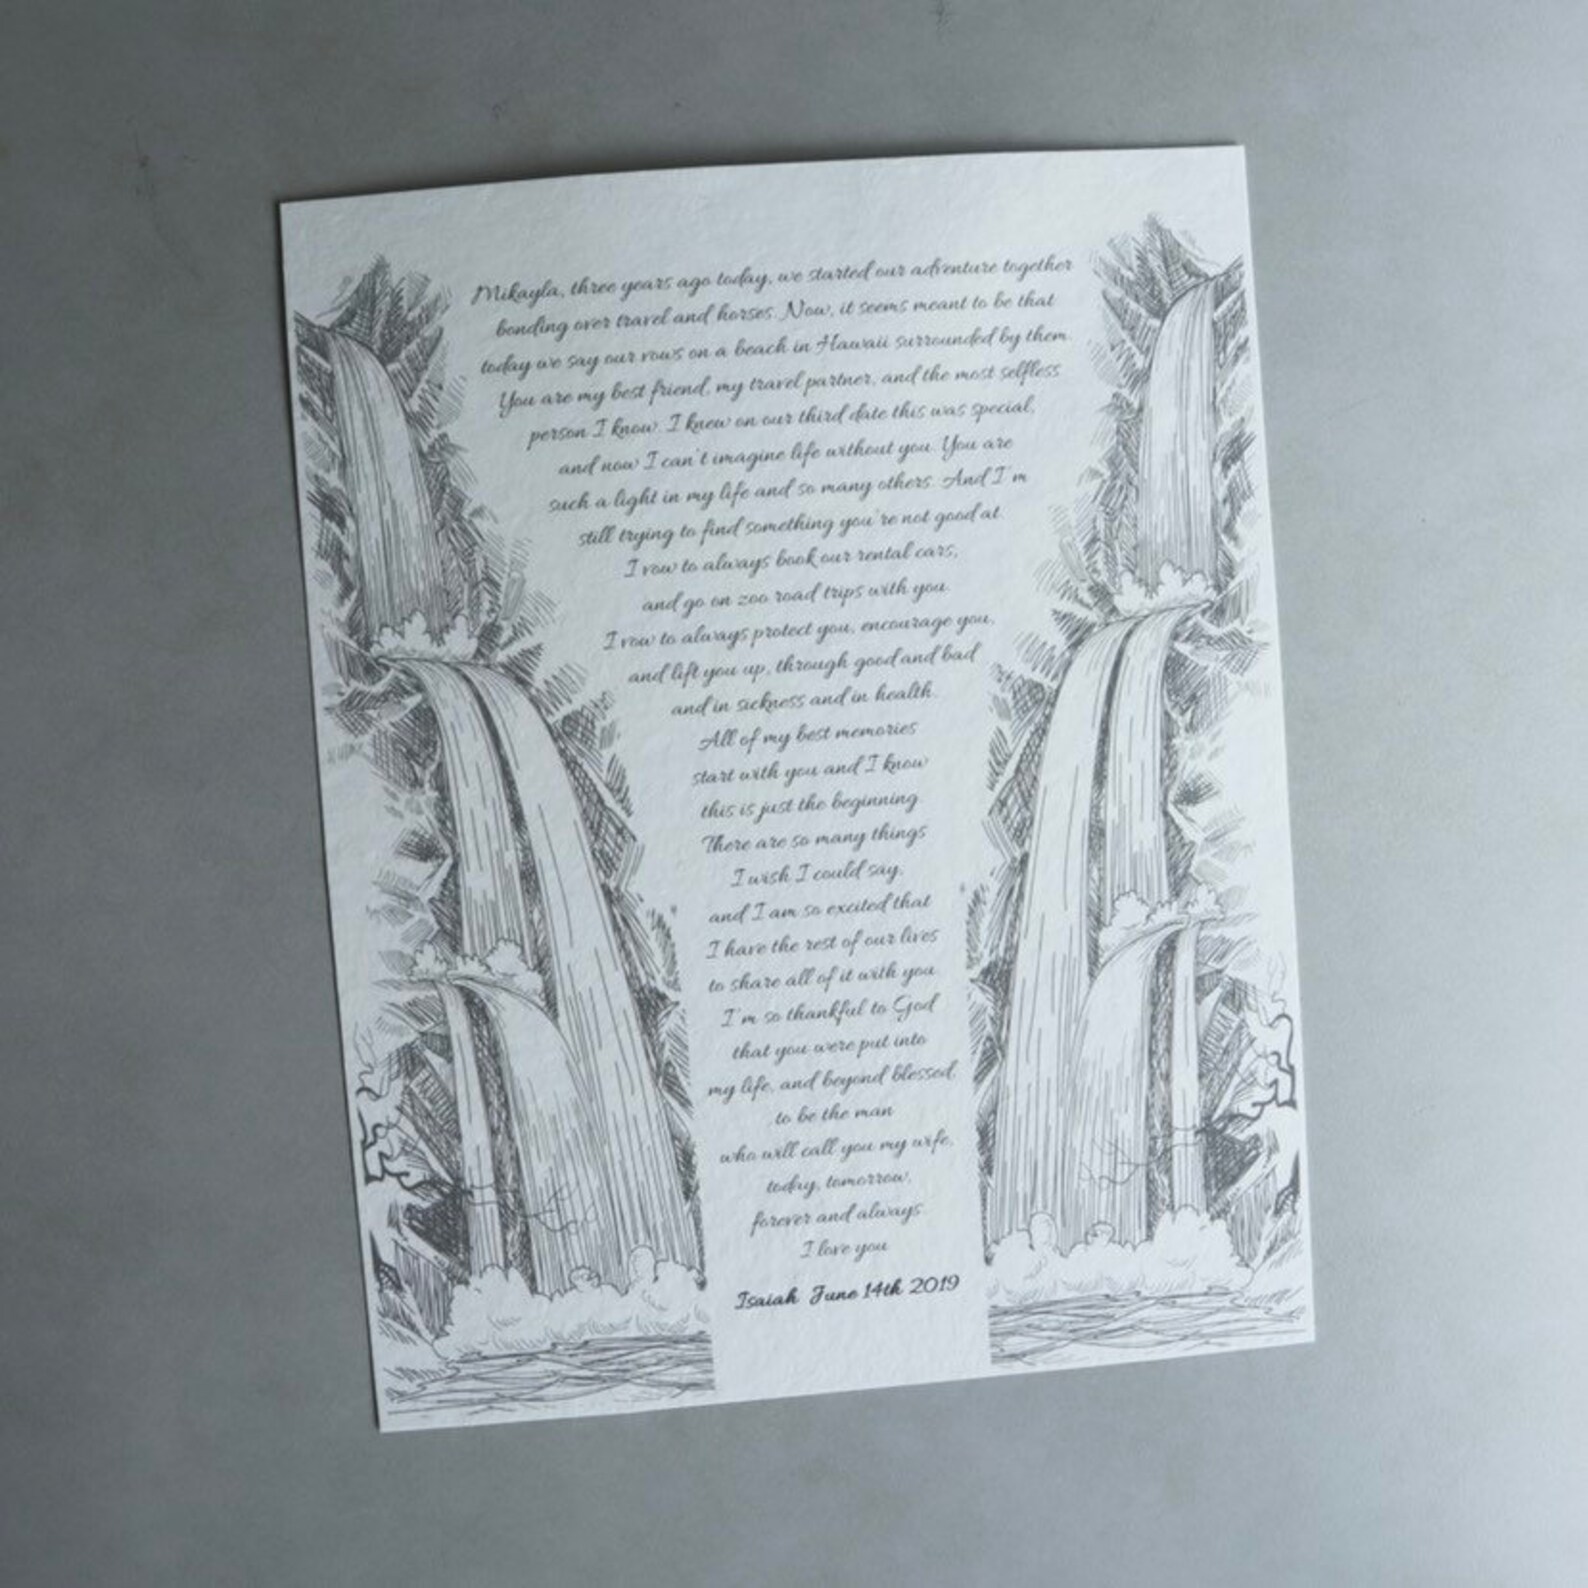 Mikayla, three years ago today, we started our adventure together
bonding over travel and horses. Now, it seems meant to be that
today we say our vows on a beach in Hawaii surrounded by them.
You are my best friend, my travel partner, and the most selfless
person I know. I knew on our third date this was special,
and now I can't imagine life without you. You are
such a light in my life and so many others. And I'm
still trying to find something you're not good at.
I vow to always book our rental cars,
and go on zoo road trips with you.
I vow to always protect you, encourage you,
and lift you up, through good and bad
and in sickness and in health.
All of my best memories
start with you and I know
this is just the beginning.
There are so many things
I wish I could say,
and I am so excited that
I have the rest of our lives
to share all of it with you.
I'm so thankful to God
that you were put into
my life, and beyond blessed,
to be the man
who will call you my wife,
today, tomorrow,
forever and always.
I love you
Isaiah June 14th 2019